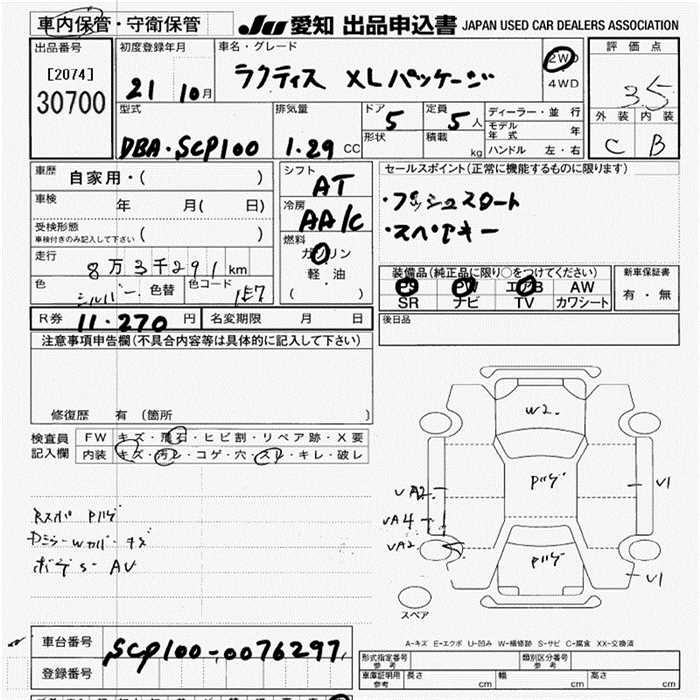 車内保管・守衛保管
JU 愛知 出品申込書 JAPAN USED CAR DEALERS ASSOCIATION
出品番号
[2074]
30700
初度登録年月
21 10月
車名・グレード
ラクティス XLパッケージ
2WD
4WD
評価点
3.5
外装 内装
C B
型式
DBA・SCP100
排気量
1.29 CC
ドア 5
形状
定員 5人
積載 kg
ディーラー・並行
モデル年式 年
ハンドル 左・右
車歴 自家用・( )
車検 年 月( 日)
受検形態
車検付きのみ記入して下さい ( )
走行
8万3千291km
色 シルバー 色替 色コード 1E7
シフト
AT
冷房
AA/C
燃料
ガソリン
軽・油
( )
セールスポイント(正常に機能するものに限ります)
・プッシュスタート
・スペアキー
装備品(純正品に限り○をつけてください)
PS PW エアB AW
SR ナビ TV カワシート
新車保証書
有・無
R券 11.270円 名変期限 月 日
後日品
注意事項申告欄(不具合内容等は具体的に記入して下さい)
修復歴 有(箇所 )
検査員記入欄
FW キズ・飛石・ヒビ割・リペア跡・X要
内装 キズ・汚レ・コゲ・穴・スレ・キレ・破レ
Rスポ Pハゲ
Dミラーwカバーキズ
ボデーS AV
W2.
Pハゲ
Pハゲ
VA2
VA4
VA2
V1
V1
スペア
A-キズ E-エクボ U-凹み W-補修跡 S-サビ C-腐食 XX-交換済
車台番号 SCP100-0076297
登録番号
形式指定番号 参考
類別区分番号 参考
車庫証明用 参考 長さ cm 幅 cm 高さ cm